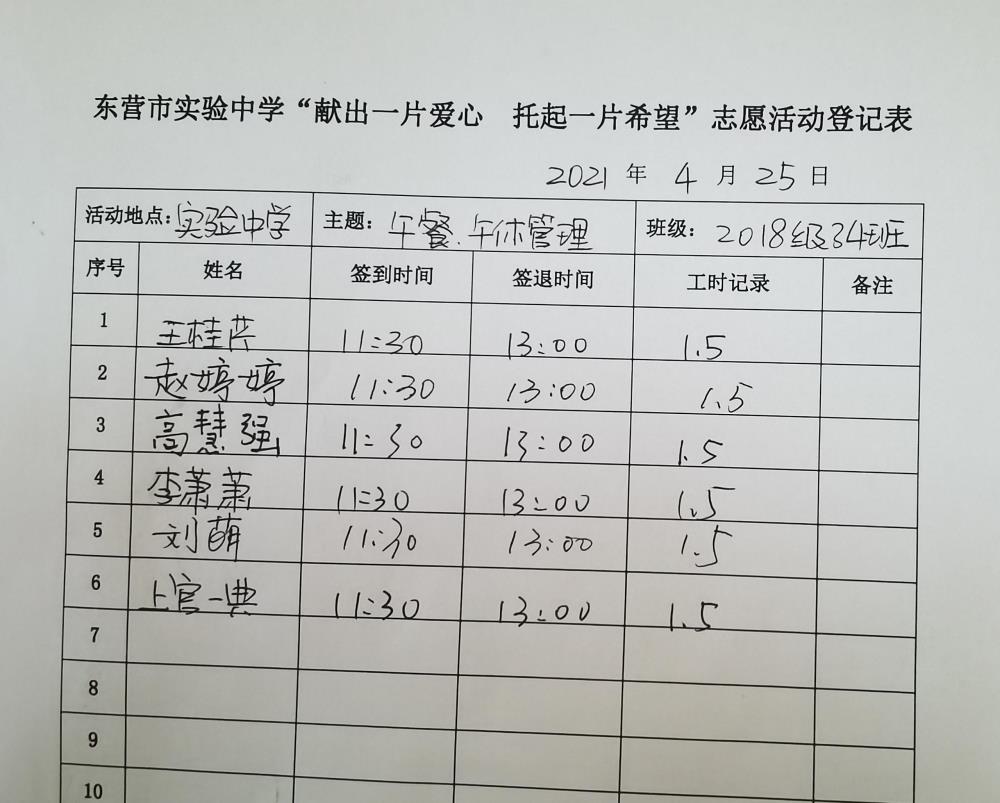 东营市实验中学“献出一片爱心 托起一片希望”志愿活动登记表
2021 年 4 月 25 日
活动地点：实验中学 主题：午餐、午休管理 班级：2018级34班
序号 姓名 签到时间 签退时间 工时记录 备注
1 王桂芹 11:30 13:00 1.5
2 赵婷婷 11:30 13:00 1.5
3 高慧强 11:30 13:00 1.5
4 李萧萧 11:30 13:00 1.5
5 刘萌 11:30 13:00 1.5
6 上官一典 11:30 13:00 1.5
7
8
9
10